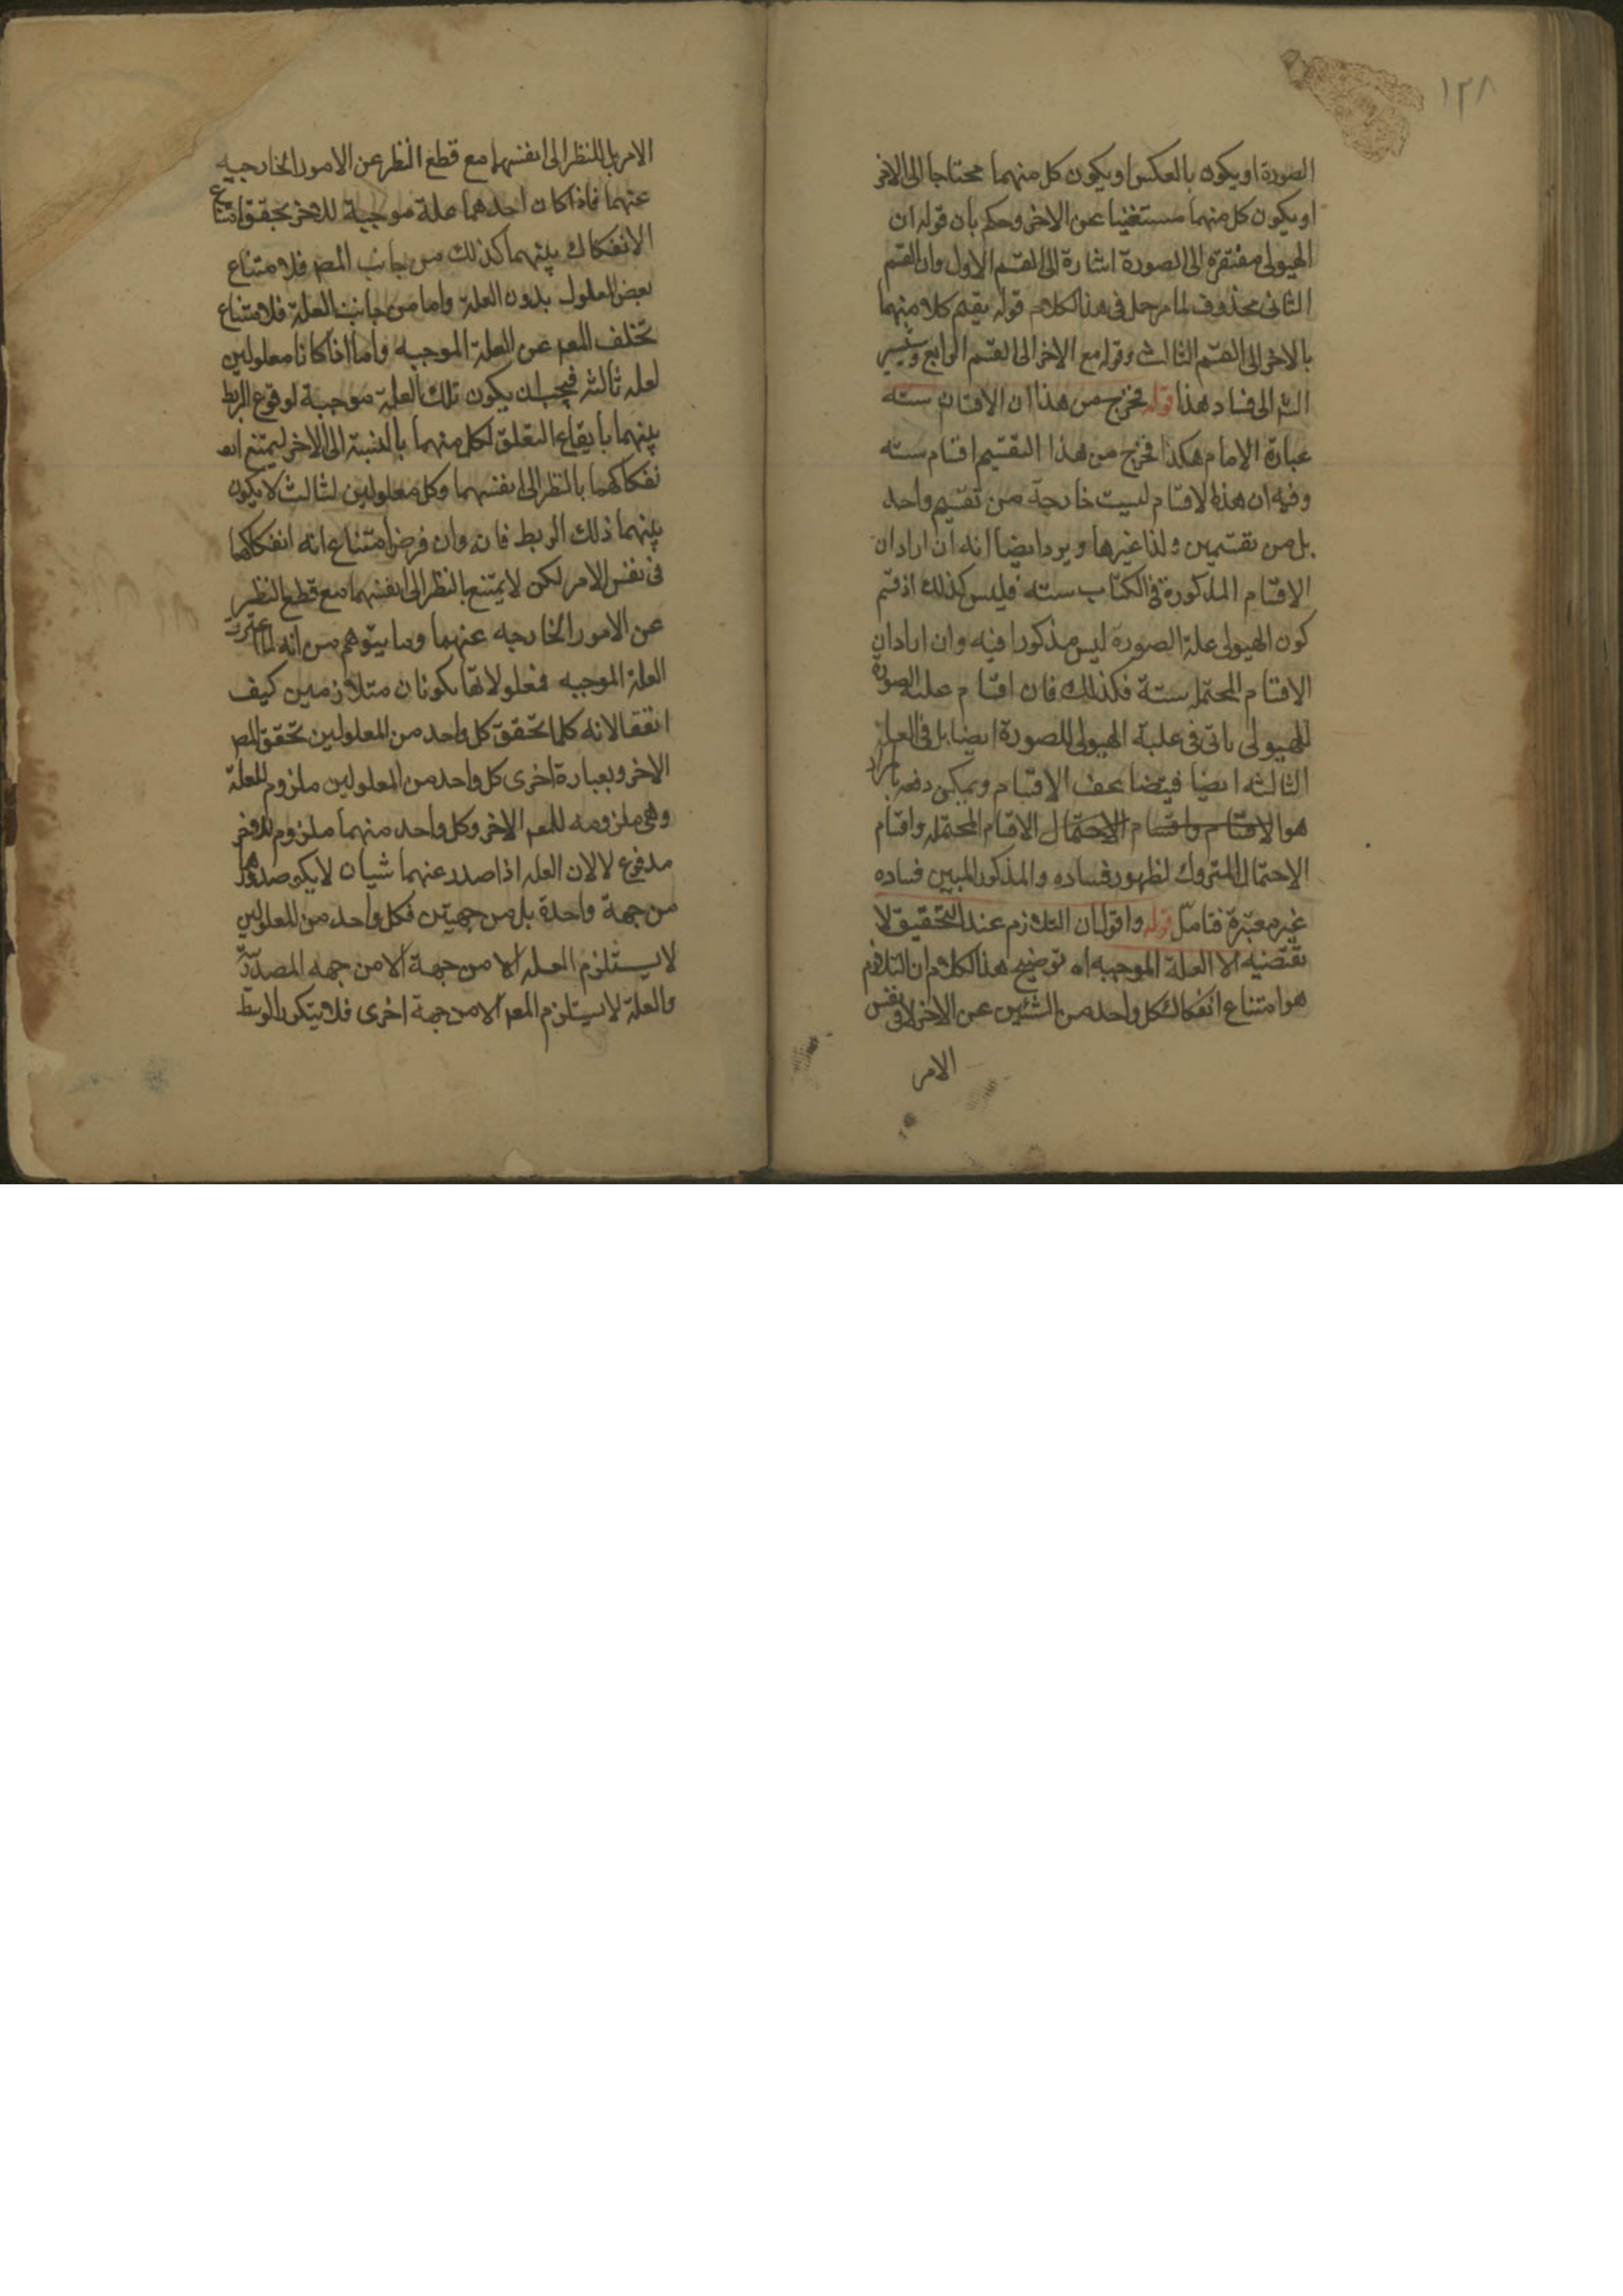 ١٢٨
الصورة او يكون بالعكس او يكون كل منهما محتاجا الى الاخر
او يكون كل منهما مستغنيا عن الاخر وحكم بان قوله ان
الهيولى مفتقرة الى الصورة اشارة الى القسم الاول وان القسم
الثانى محذوف لما مر حمل فى هذا الكلام قوله يقيم كلا منهما
بالاخر الى القسم الثالث وقوله مع الاخر الى القسم الرابع ويشير
الى فساد هذا قوله فخرج من هذا ان الاقسام سته
عبارة الامام هكذا فخرج من هذا التقسيم اقسام سته
وفيه ان هذه الاقسام ليست خارجة من تقسيم واحد
بل من تقسيمين ولذا غيرها ويرد ايضا انه ان اراد ان
الاقسام المذكورة فى الكتاب سته فليس كذلك اذ قسم
كون الهيولى علة الصورة ليس مذكورا فيه وان اراد ان
الاقسام المحتمله ستة فكذلك فان اقسام علية الصورة
للهيولى ياتى فى علية الهيولى للصورة ايضا بل فى العلة
الثالثه ايضا فيتضاعف الاقسام ويمكن دفعه بان المراد
هو الاقسام واقسام الاحتمال الاقسام المحتمله واقسام
الاحتمال المتروك لظهور فساده والمذكور المبين فساده
غير معتبرة فتامل قوله واقول ان التلازم عند التحقيق لا
يقتضيه الا العلة الموجبه اه توضيح هذا الكلام ان التلازم
هو امتناع انفكاك كل واحد من الشئين عن الاخر لا فى نفس
الامر
الامر بل بالنظر الى انفسهما مع قطع النظر عن الامور الخارجيه
عنهما فاذا كان احدهما علة موجبة للاخر يحقق امتناع
الانفكاك بينهما كذلك من جانب المعم فلامتناع
بعض المعلول بدون العلة واما من جانب العلة فلامتناع
تخلف المعم عن العلة الموجبه واما اذا كانا معلولين
لعله ثالثه فيجب ان يكون تلك العلة موجبة لوقوع الربط
بينهما بايقاع التعلق لكل منهما بالنسبة الى الاخر ليمتنع
انفكاكهما بالنظر الى انفسهما وكل معلولين لثالث لا يكون
بينهما ذلك الربط فانه وان فرض امتناع انه انفكاكهما
فى نفس الامر لكن لا يمتنع بالنظر الى انفسهما مع قطع النظر
عن الامور الخارجه عنهما وما يتوهم من انه لما اعتبرت
العلة الموجبه فمعلولاتها يكونان متلازمين كيف
اتفقا لانه كلما تحقق كل واحد من المعلولين تحقق المعم
الاخر وبعبارة اخرى كل واحد من المعلولين ملزوم للعلة
وهى ملزومه للمعم الاخر وكل واحد منهما ملزوم للاخر
مدفوع لا لان العله اذا صدر عنهما شيان لا يكو صدورهما
من جهة واحدة بل من جهتين فكل واحد من المعلولين
لا يستلزم العله الا من جهة الا من جهه المصدرية
والعلة لا يستلزم المعم الا من جهة اخرى فلا يتكرر الوسط